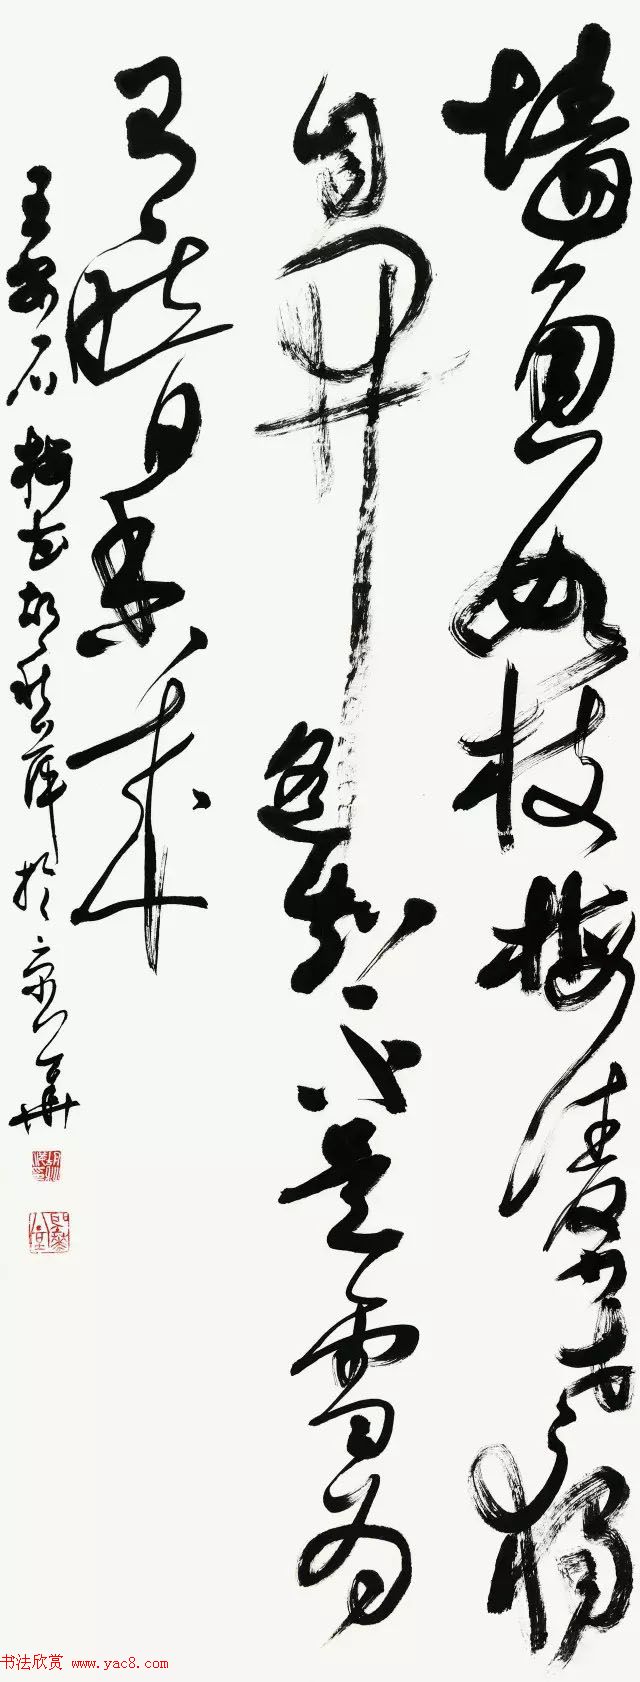 墙角数枝梅凌寒独
自开遥知不是雪为
有暗香来
王安石梅花胡秋萍于京华
书法欣赏 www.yac8.com